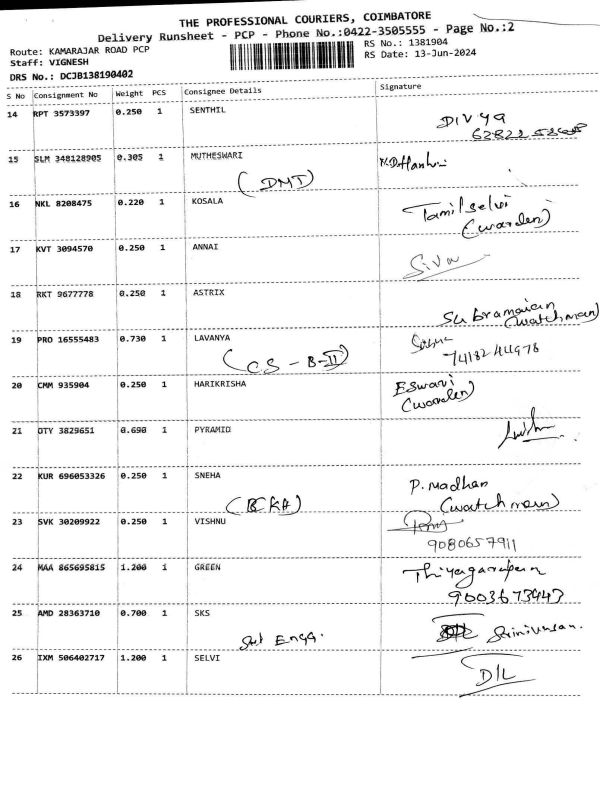 THE PROFESSIONAL COURIERS, COIMBATORE
Delivery Runsheet - PCP - Phone No.:0422-3505555 - Page No.:2
Route: KAMARAJAR ROAD PCP
RS No.: 1381904
Staff: VIGNESH
RS Date: 13-Jun-2024
DRS No.: DCJB138190402
S No Consignment No Weight PCS Consignee Details Signature
14 RPT 3573397 0.250 1 SENTHIL
DIVYA
15 SLM 348128905 0.305 1 MUTHESWARI
(DMT)
16 NKL 8208475 0.220 1 KOSALA Tamilselvi
(warden)
17 KVT 3094570 0.250 1 ANNAI
Siva
18 RKT 9677778 0.250 1 ASTRIX
Subramaian
(watchman)
19 PRO 16555483 0.730 1 LAVANYA
(CS - B-II) 74182 44978
20 CMM 935904 0.250 1 HARIKRISHA Eswari
(warden)
21 OTY 3829651 0.690 1 PYRAMID
22 KUR 696053326 0.250 1 SNEHA P. madhan
(watch man)
23 SVK 30209922 0.250 1 VISHNU
9080657911
24 MAA 865695815 1.200 1 GREEN
9003673943
25 AMD 28363710 0.700 1 SKS
Srinivasan.
26 IXM 506402717 1.200 1 SELVI
D/L